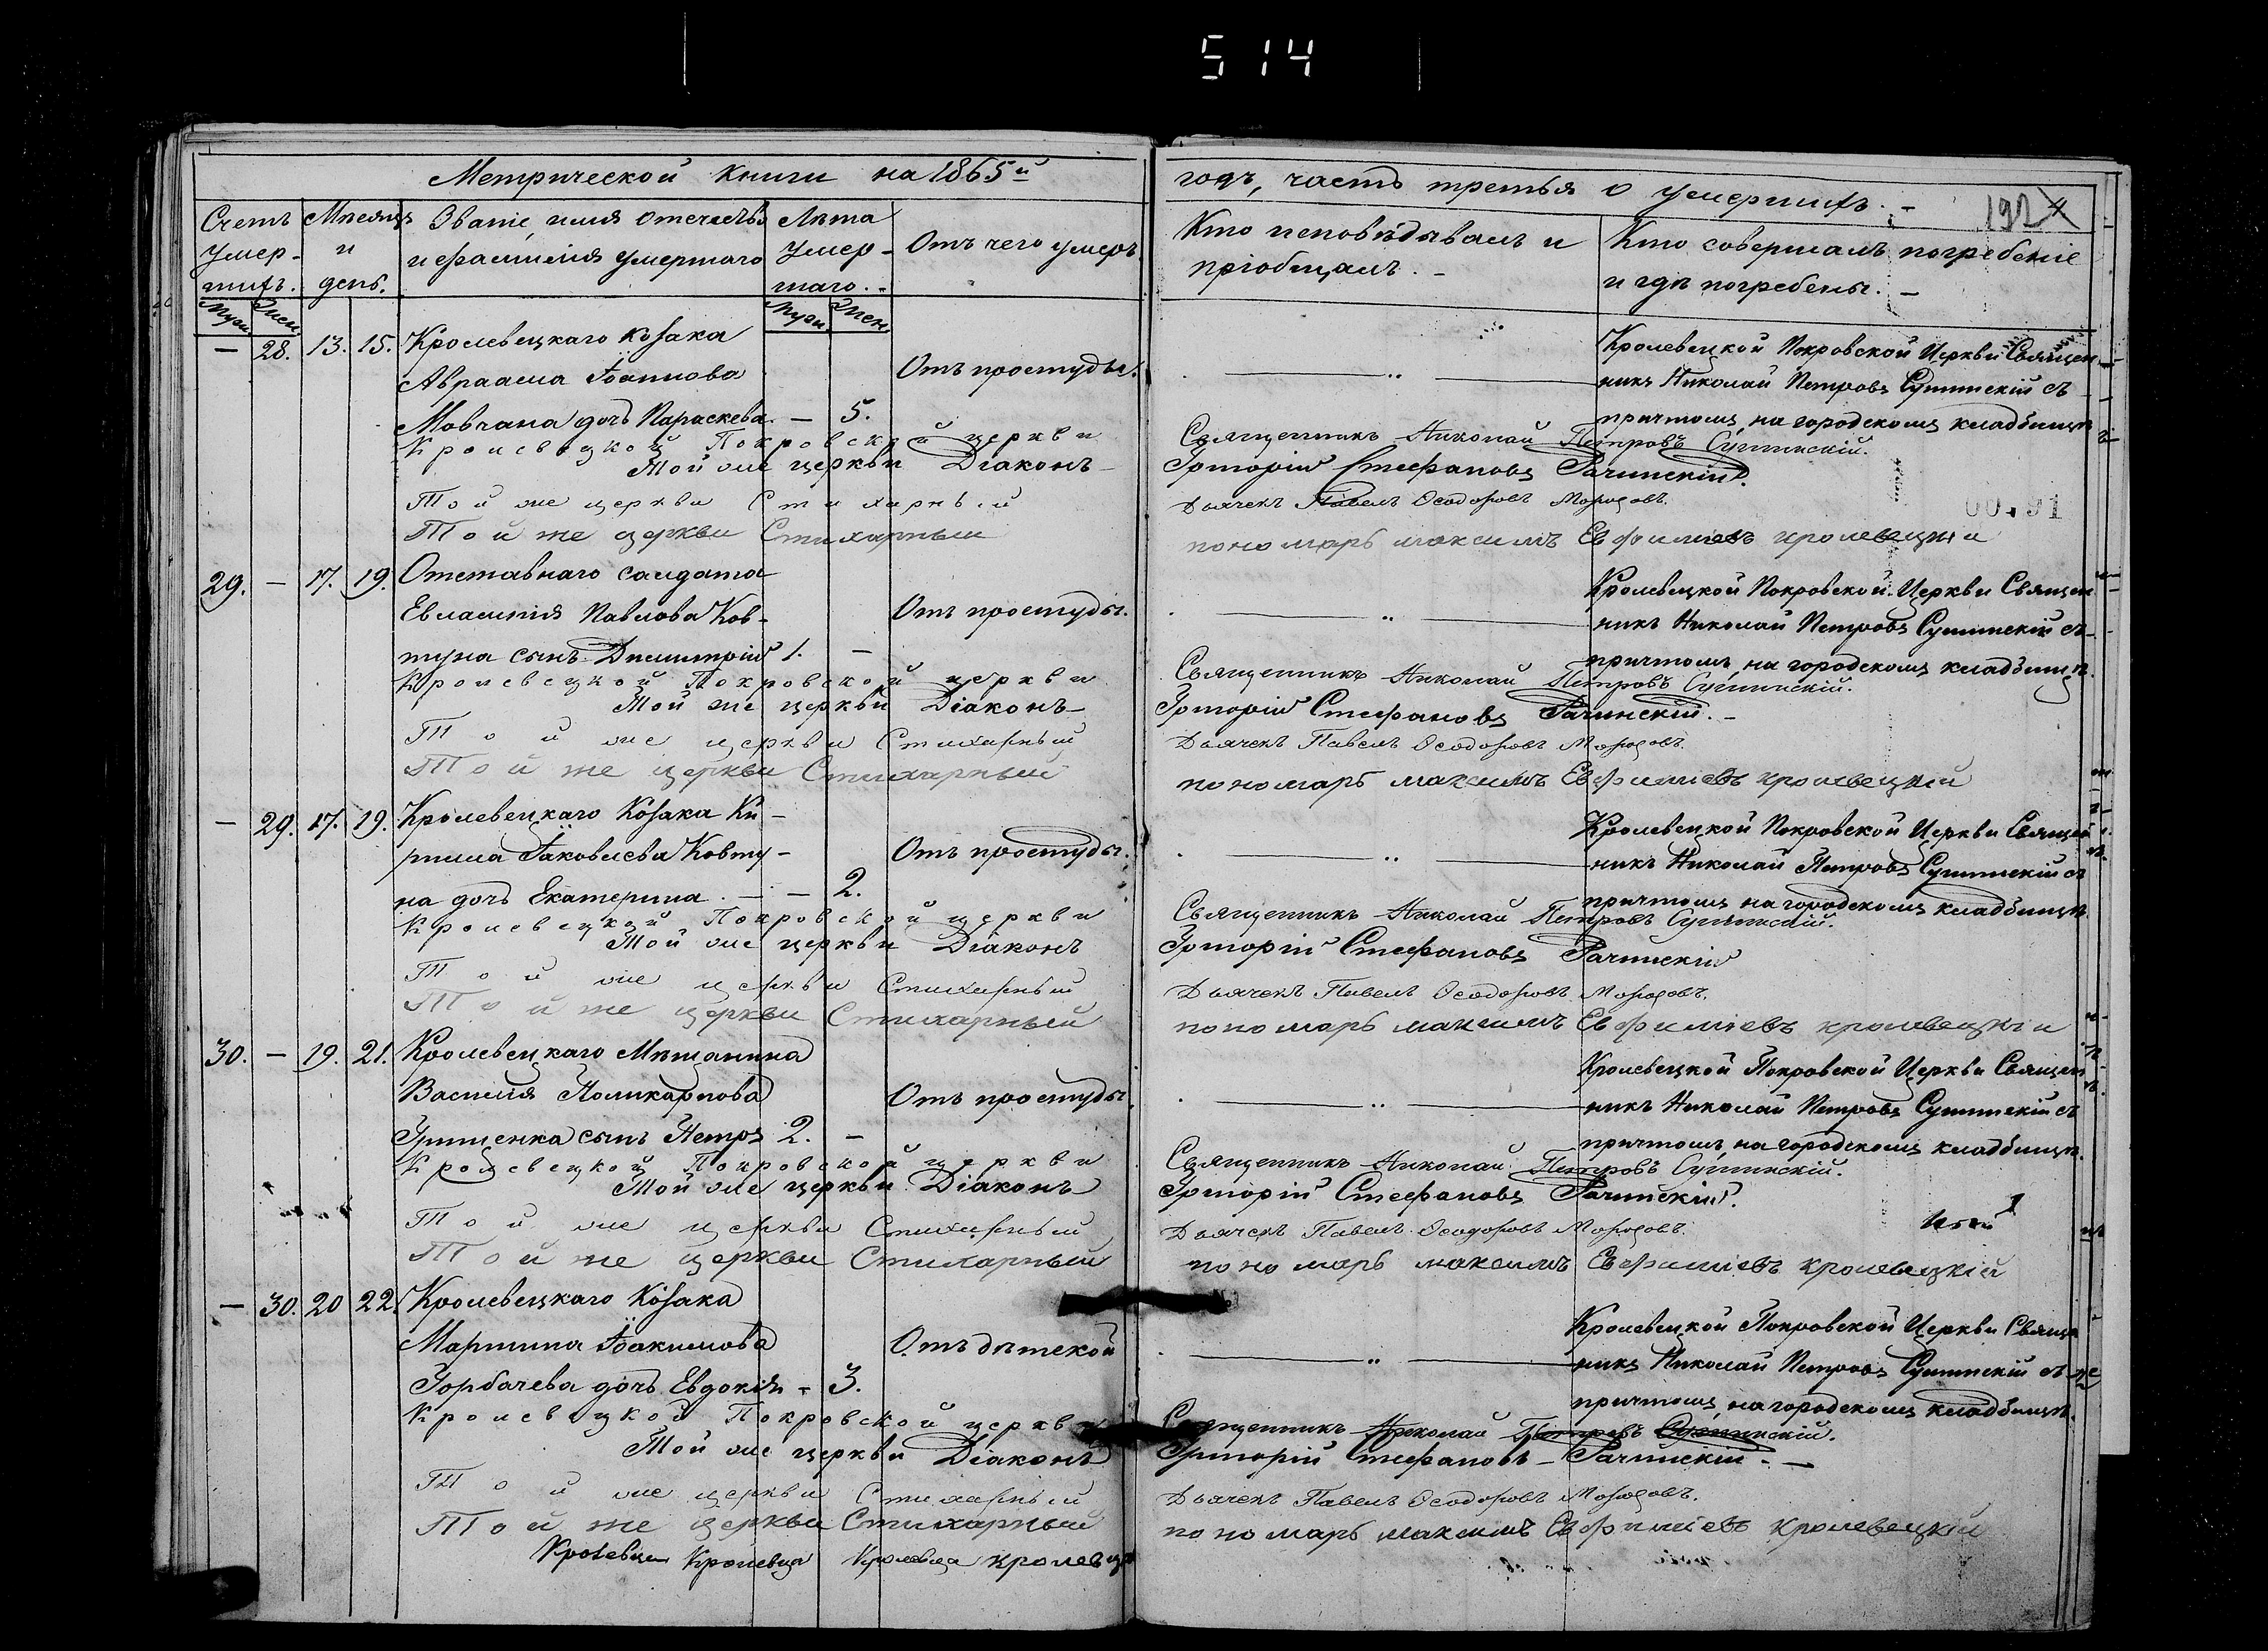 514
Метрической книги на 1865й
годъ, часть третья о умершихъ. -
192
Счетъ умер-шихъ.
Мѣсяцъ и день.
Званіе, имя отечество и фамилія умершаго
Лѣта умер-шаго. -
Отъ чего умеръ
Кто исповѣдывалъ и пріобщалъ. -
Кто совершалъ погребеніе и гдѣ погребены. -
Муж. Жен. Муж. Жен.
— 28. 13. 15. Кролевецкаго козака
Авраама Іоаннова Отъ простуды.
Мовчана дочь Параскева. — 5.
Кролевецкой Покровской Церкви Священ
никъ Николай Петровъ Сушинскій съ
причтомъ, на городскомъ кладбищѣ
Кролевецкой Покровской церкви Священникъ Николай Петровъ Сушинскій.
Той же церкви Діаконъ Григорій Стефановъ Рачинскій.
Той же церкви Стихарный Дьячекъ Павелъ Ѳеодоровъ Морозовъ.
Той же церкви Стихарный пономарь максимъ Евфиміевъ кролевецкій
00191
29. — 17. 19. Отставнаго солдата
Евлампія Павлова Ков- Отъ простуды.
туна сынъ Димитрій 1. —
Кролевецкой Покровской Церкви Священ
никъ Николай Петровъ Сушинскій съ
причтомъ, на городскомъ кладбищѣ.
Кролевецкой Покровской церкви Священникъ Николай Петровъ Сушинскій.
Той же церкви Діаконъ Григорій Стефановъ Рачинскій. -
Той же церкви Стихарный Дьячекъ Павелъ Ѳеодоровъ Морозовъ.
Той же церкви Стихарный пономарь максимъ Евфиміевъ кролевецкій
— 29. 17. 19. Кролевецкаго Козака Ки-
рилла Іаковлева Ковту- Отъ простуды.
на дочь Екатерина. — — 2.
Кролевецкой Покровской Церкви Священ
никъ Николай Петровъ Сушинскій съ
причтомъ на городскомъ кладбищѣ.
Кролевецкой Покровской церкви Священникъ Николай Петровъ Сушинскій.
Той же церкви Діаконъ Григорій Стефановъ Рачинскій
Той же церкви Стихарный Дьячекъ Павелъ Ѳеодоровъ Морозовъ.
Той же церкви Стихарный пономарь максимъ Евфиміевъ кролевецкій
30. — 19. 21. Кролевецкаго Мѣщанина
Василія Поликарпова Отъ простуды
Грищенка сынъ Петръ 2. —
Кролевецкой Покровской Церкви Священ
никъ Николай Петровъ Сушинскій съ
причтомъ, на городскомъ кладбищѣ.
Кролевецкой Покровской церкви Священникъ Николай Петровъ Сушинскій.
Той же церкви Діаконъ Григорій Стефановъ Рачинскій.
Той же церкви Стихарный Дьячекъ Павелъ Ѳеодоровъ Морозовъ.
Той же церкви Стихарный пономарь максимъ Евфиміевъ кролевецкій
— 30. 20 22. Кролевецкаго Козака
Мартина Іоакимова Отъ дѣтской
Горбачева дочь Евдокія - 3.
Кролевецкой Покровской Церкви Свяще
никъ Николай Петровъ Сушинскій съ
причтомъ, на городскомъ кладбищѣ.
Кролевецкой Покровской церкви Священникъ Николай Петровъ Сушинскій.
Той же церкви Діаконъ Григорій Стефановъ - Рачинскій. —
Той же церкви Стихарный Дьячекъ Павелъ Ѳеодоровъ Морозовъ.
Той же церкви Стихарный пономарь максимъ Евфиміевъ кролевецкій
Кролевца Кролевца Кролевца кролевца